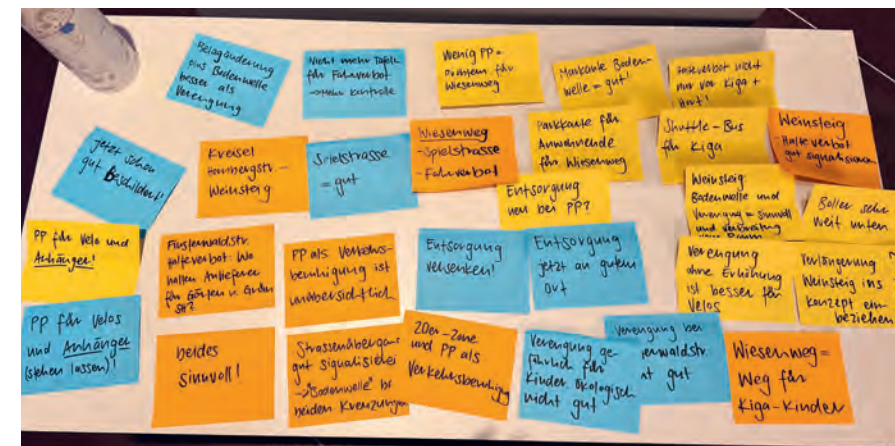 Belagänderung
plus Bodenwelle
besser als
Verengung
Nicht mehr Tafeln
für Fahrverbot
→ Mehr Kontrolle
Wenig PP =
Problem für
Wiesenweg
Markante Boden-
welle = gut!
Halteverbot nicht
nur vor Kiga +
Hort!
jetzt schon
gut beschildert!
Kreisel
Hombergstr. –
Weinsteig
Spielstrasse
= gut
Wiesenweg
- Spielstrasse
- Fahrverbot
Parkkarte für
Anwohnende
für Wiesenweg
Shuttle-Bus
für Kiga
Weinsteig
- Halteverbot
gut signalisieren
Entsorgung
neu bei PP?
Weinsteig:
Bodenwelle und
Verengung = sinnvoll
und
Poller sehr
weit unten
PP für Velo und
Anhänger!
Finsterwaldstr.
Halteverbot: Wo
halten Anlieferer
für Gärten u. Grün
PP als Verkehrs-
beruhigung ist
unübersichtlich
Entsorgung
versenken!
Entsorgung
jetzt an gutem
Ort
Verengung
ohne Erhöhung
ist besser für
Velos
Verlängerung
Weinsteig ins
Konzept ein-
beziehen
PP für Velos
und Anhänger
(stehen lassen)!
beides
sinnvoll!
Strassenübergang
gut signalisiert
→ "Bodenwelle" bei
beiden Kreuzungen
20er-Zone
und PP als
Verkehrsberuhigung
Verengung ge-
fährlich für
Kinder ökologisch
nicht gut
Verengung bei
gut
Wiesenweg =
Weg für
Kiga-Kinder